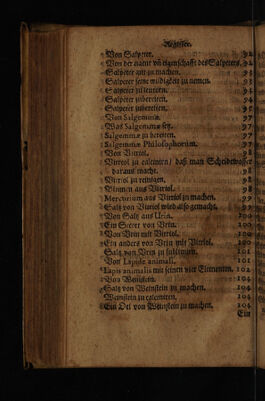 Register.
Von Salpeter. 92
Von der natur vñ eigenschafft des Salpeters. 92
Salpeter gut zu machen. 93
Salpeter seine wildigkeit zu nemen. 93
Salpeter zu leutern. 94
Salpeter zubereiten. 94
Salpeter zubereiten. 95
Von Salgemmæ. 97
Was Salgemmæ sey. 97
Salgemmæ zu bereiten. 97
Salgemmæ Philosophorum. 97
Von Vitriol. 98
Vitriol zu calcinirn/ daß man Scheidwasser
daraus macht. 98
Vitriol zu reinigen. 98
Blumen aus Vitriol. 98
Mercurium aus Vitriol zu machen. 99
Saltz von Vitriol wird also gemacht. 99
Von Saltz aus Urin. 100
Ein Secret von Urin. 100
Von Urin mit Vitriol. 100
Ein anders von Urin mit Vitriol. 101
Saltz von Urin zu sublimirn. 101
Von Lapide animali.
Lapis animalis mit seinen vier Elementen.
Von Weinstein. 104
Saltz von Weinstein zu machen. 104
Weinstein zu calciniren. 104
Ein Oel von Weinstein zu machen. 104
Ein